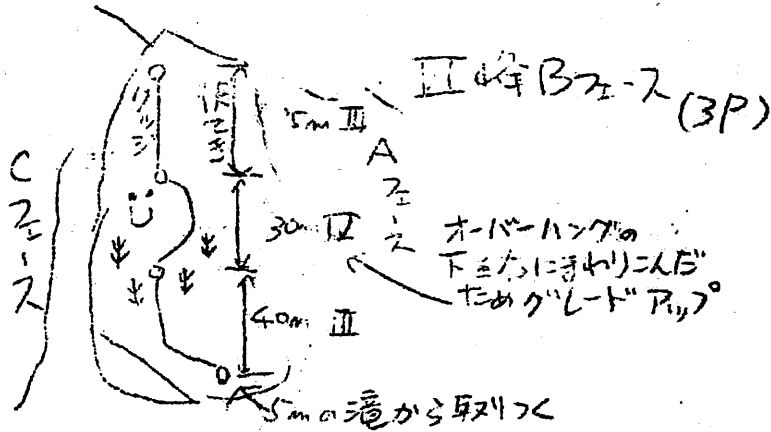 III峰Bフェース (3P)
リッジ
快てき
15m III
Aフェース
Cフェース
30m IV
オーバーハングの
下を右にまわりこんだ
ためグレードアップ
40m III
5mの滝から取りつく